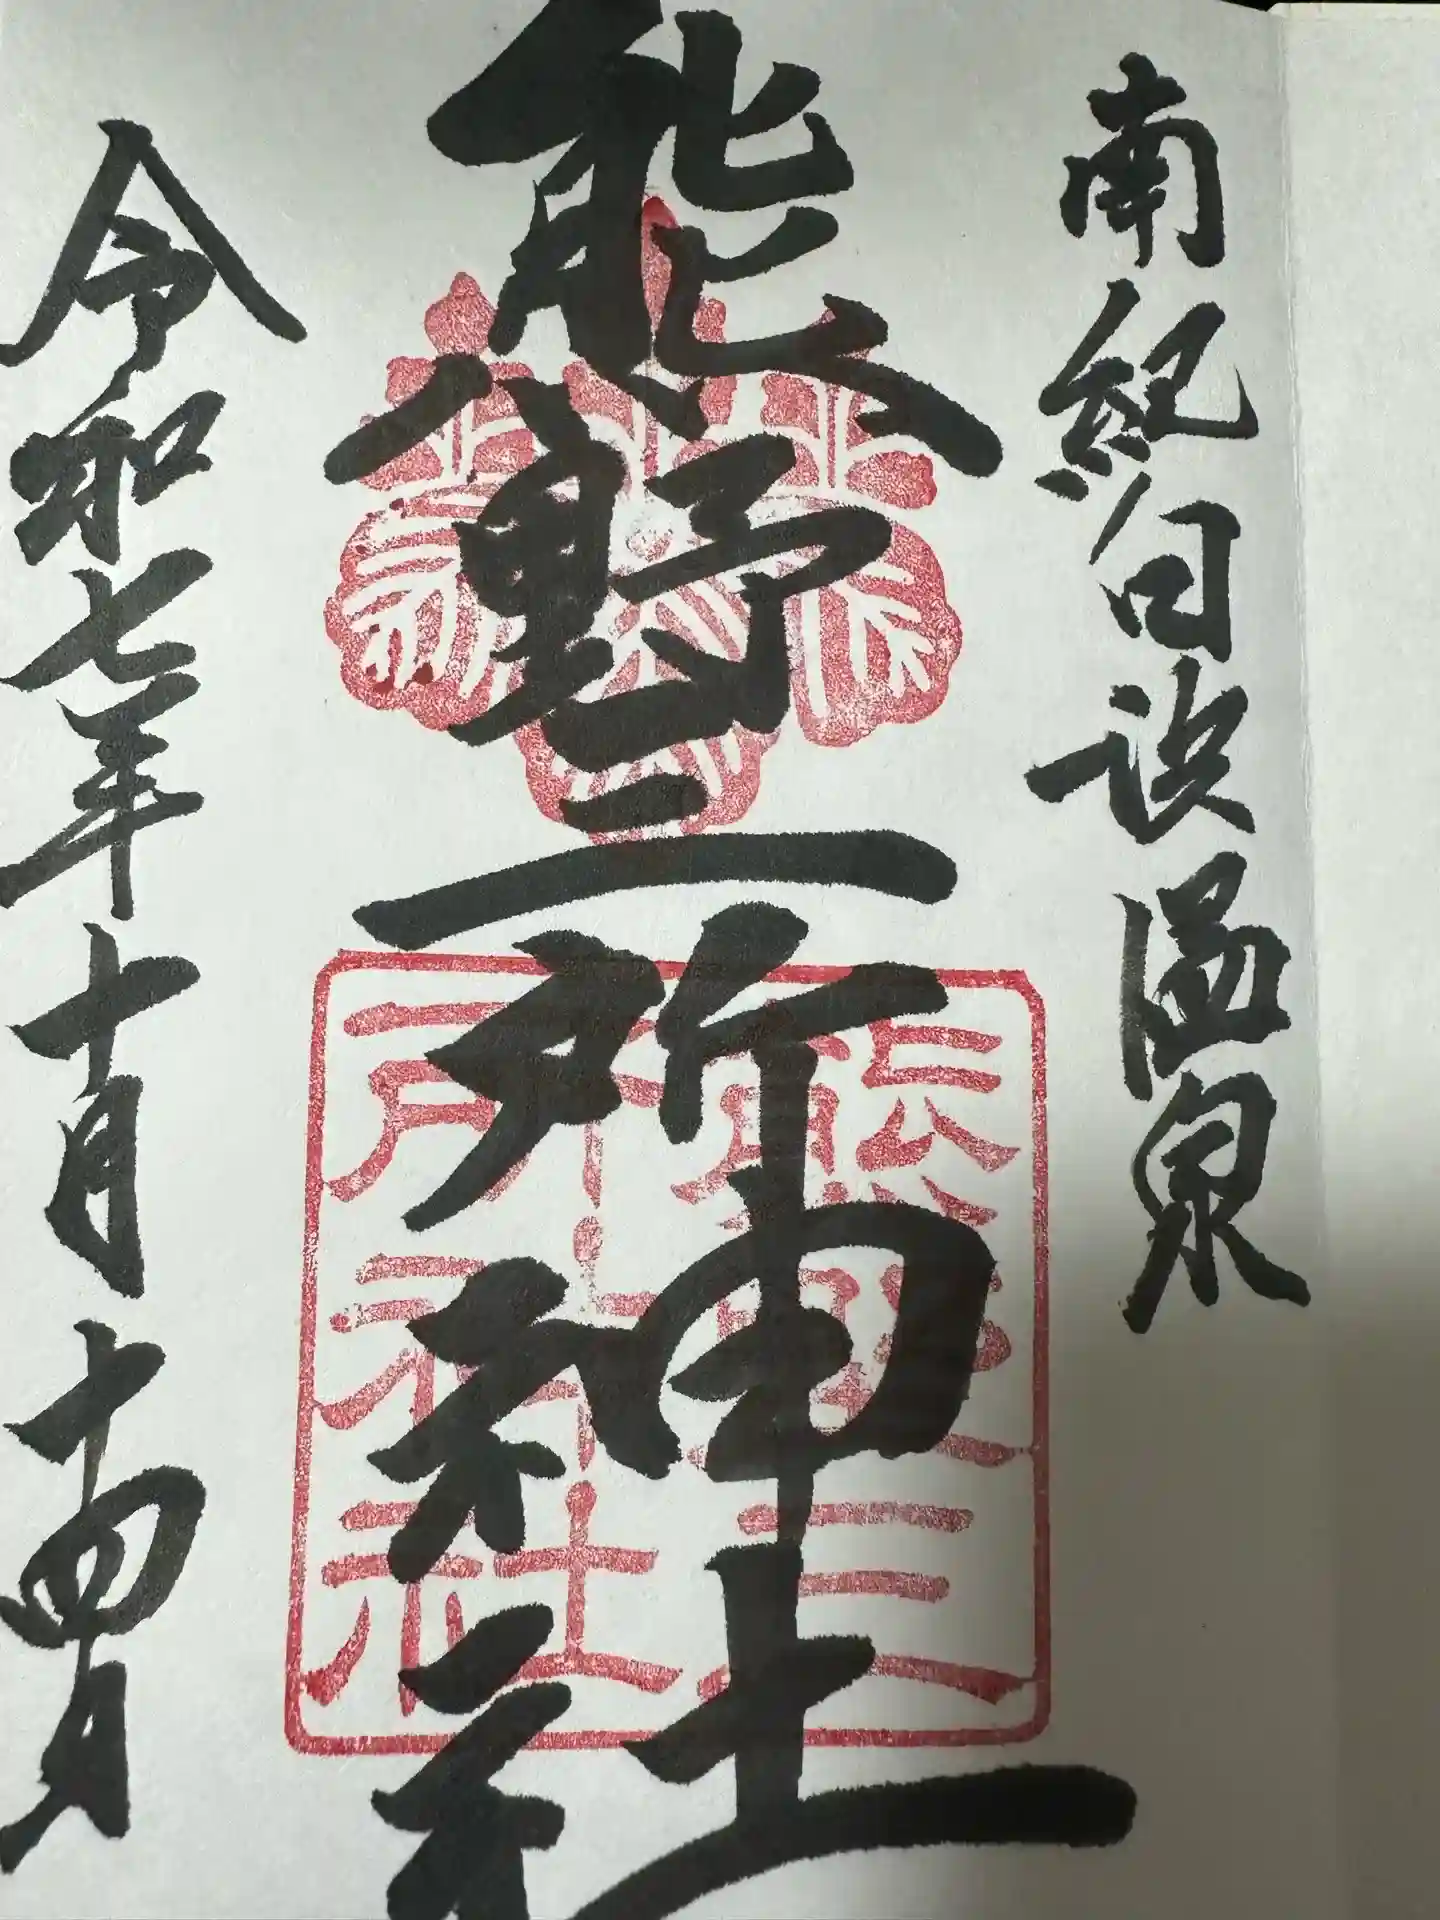 南紀白浜温泉
熊野三所神社
令和七年十月十四日
熊野三
所神社